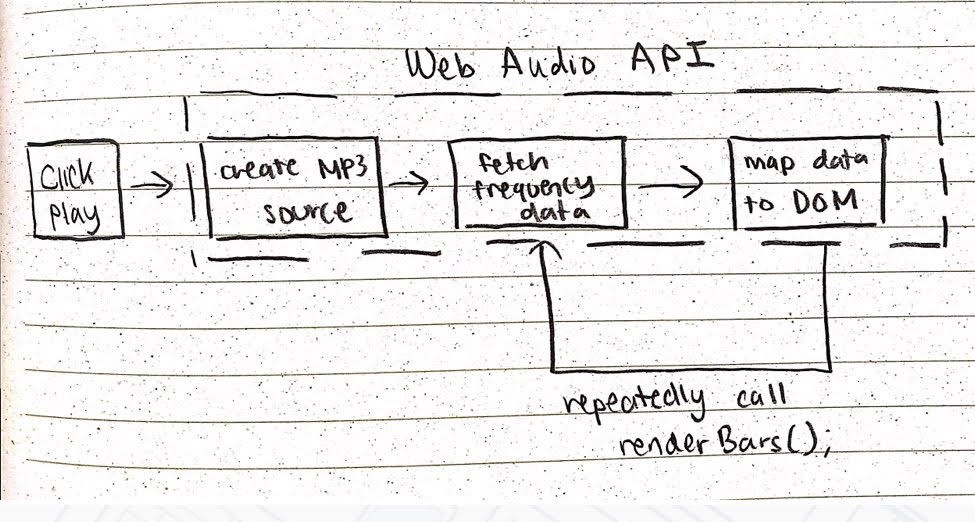 Web Audio API
Click
play
create MP3
source
fetch
frequency
data
map data
to DOM
repeatedly call
renderBars();